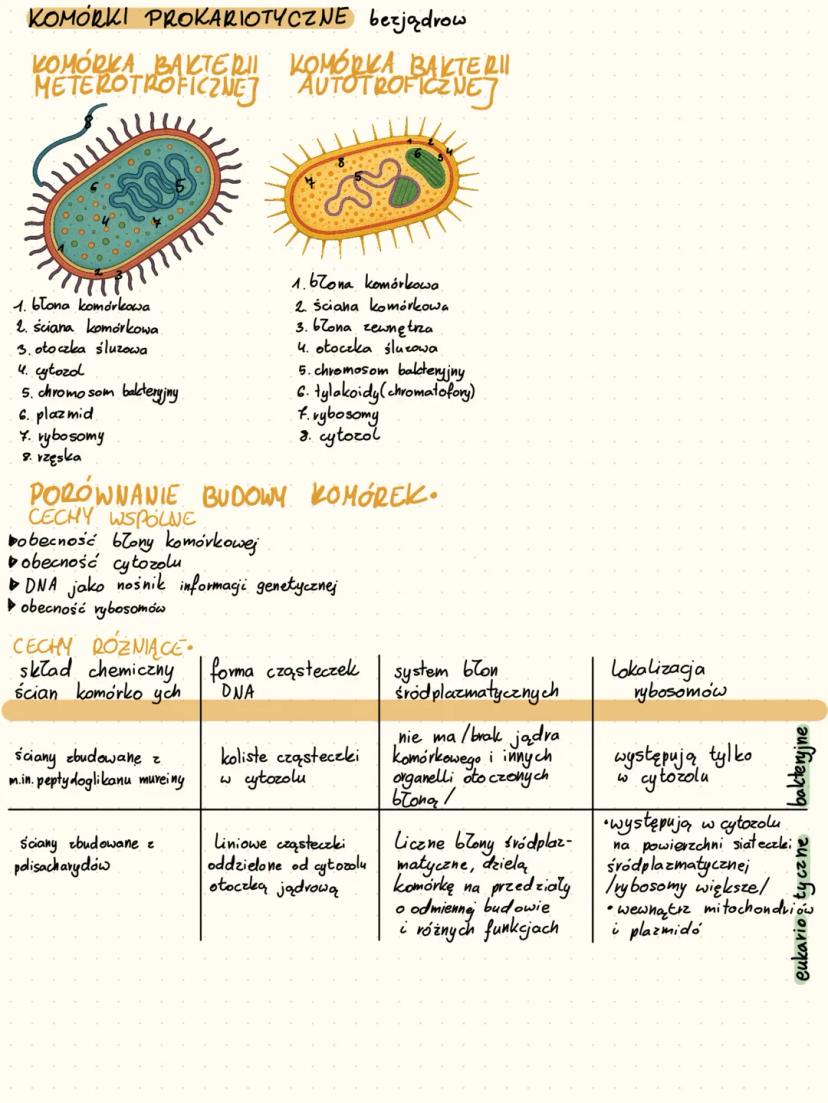 KOMÓRKI PROKARIOTYCZNE bezjądrow
KOMÓRKA BAKTERII
METEROTROFICZNEJ
KOMÓRKA BAKTERII
AUTOTROFICZNEJ
8
6
5
4
7
1
2
3
1
2
8
6
3
4
7
5
1. błona komórkowa
2. ściana komórkowa
3. otoczka śluzowa
4. cytozol
5. chromosom bakteryjny
6. plazmid
7. rybosomy
8. rzęska
1. błona komórkowa
2. ściana komórkowa
3. błona zewnętrza
4. otoczka śluzowa
5. chromosom bakteryjny
6. tylakoidy (chromatofory)
7. rybosomy
8. cytozol
PORÓWNANIE BUDOWY KOMÓREK.
CECHY WSPÓLNE
▶obecność błony komórkowej
▶obecność cytozolu
▶ DNA jako nośnik informacji genetycznej
▶ obecność rybosomów
CECHY RÓŻNIĄCE.
skład chemiczny
ścian komórko ych
forma cząsteczek
DNA
system błon
śródplazmatycznych
lokalizacja
rybosomów
ściany zbudowane z
m.in. peptydoglikanu mureiny
koliste cząsteczki
w cytozolu
nie ma /brak jądra
komórkowego i innych
organelli otoczonych
błoną/
występują tylko
w cytozolu
bakteryjne
ściany zbudowane z
polisacharydów
Liniowe cząsteczki
oddzielone od cytozolu
otoczką jądrową
Liczne błony śródplaz-
matyczne, dzielą
komórkę na przedziały
o odmiennej budowie
i różnych funkcjach
•występują w cytozolu
na powierzchni siateczki
śródplazmatycznej
/rybosomy większe/
•wewnątrz mitochondriów
i plazmidó
eukariotyczne